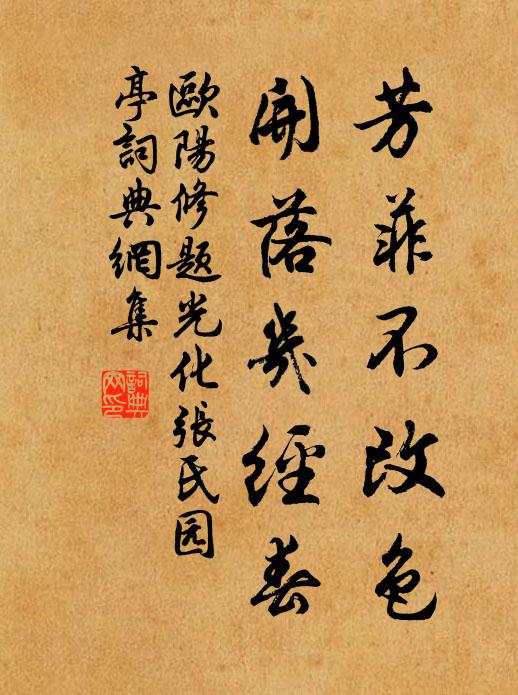 芳菲不改色
開落幾經春
歐陽修题光化張氏园
亭詞典網集
詞典
网印